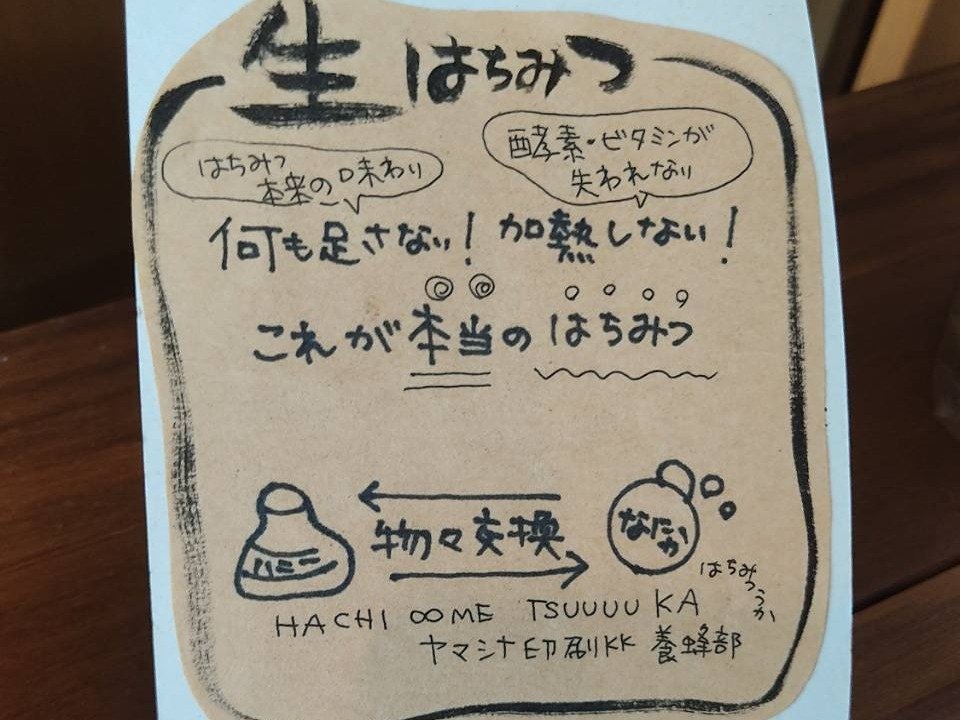 生はちみつ
はちみつ
本来の味わり
酵素・ビタミンが
失われない
何も足さない! 加熱しない!
これが本当のはちみつ
物々交換
ハミー
なにか
はちみつうか
HACHI ∞ME TSUUUU KA
ヤマシナ印刷KK 養蜂部